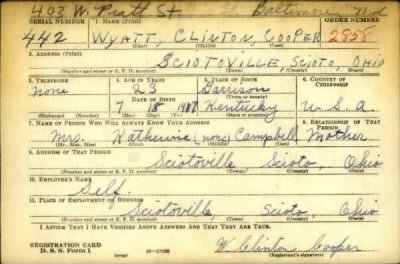 403 W. Pratt St. Baltimore Md
SERIAL NUMBER 1. NAME (Print) ORDER NUMBER
442 WYATT, CLINTON, COOPER 2858
(First) (Middle) (Last)
2. ADDRESS (Print)
SCIOTOVILLE, SCIOTO, OHIO
(Number and street or R. F. D. number) (Town) (County) (State)
3. TELEPHONE 4. AGE IN YEARS 5. PLACE OF BIRTH 6. COUNTRY OF CITIZENSHIP
none 23 Garrison
DATE OF BIRTH (Town or county)
7 1st 1917 Kentucky U.S.A.
(Mo.) (Day) (Yr.) (State or country)
7. NAME OF PERSON WHO WILL ALWAYS KNOW YOUR ADDRESS 8. RELATIONSHIP OF THAT PERSON
Mrs. Katherine (none) Campbell Mother
(Mr., Mrs., Miss) (First) (Middle) (Last)
9. ADDRESS OF THAT PERSON
Sciotoville Scioto, Ohio
(Number and street or R. F. D. number) (Town) (County) (State)
10. EMPLOYER'S NAME
Self.
11. PLACE OF EMPLOYMENT OR BUSINESS
Sciotoville, Scioto, Ohio
(Number and street or R. F. D. number) (Town) (County) (State)
I AFFIRM THAT I HAVE VERIFIED ABOVE ANSWERS AND THAT THEY ARE TRUE.
REGISTRATION CARD
D. S. S. Form 1 (over) 16—17105 W. Clinton Cooper
(Registrant's signature)